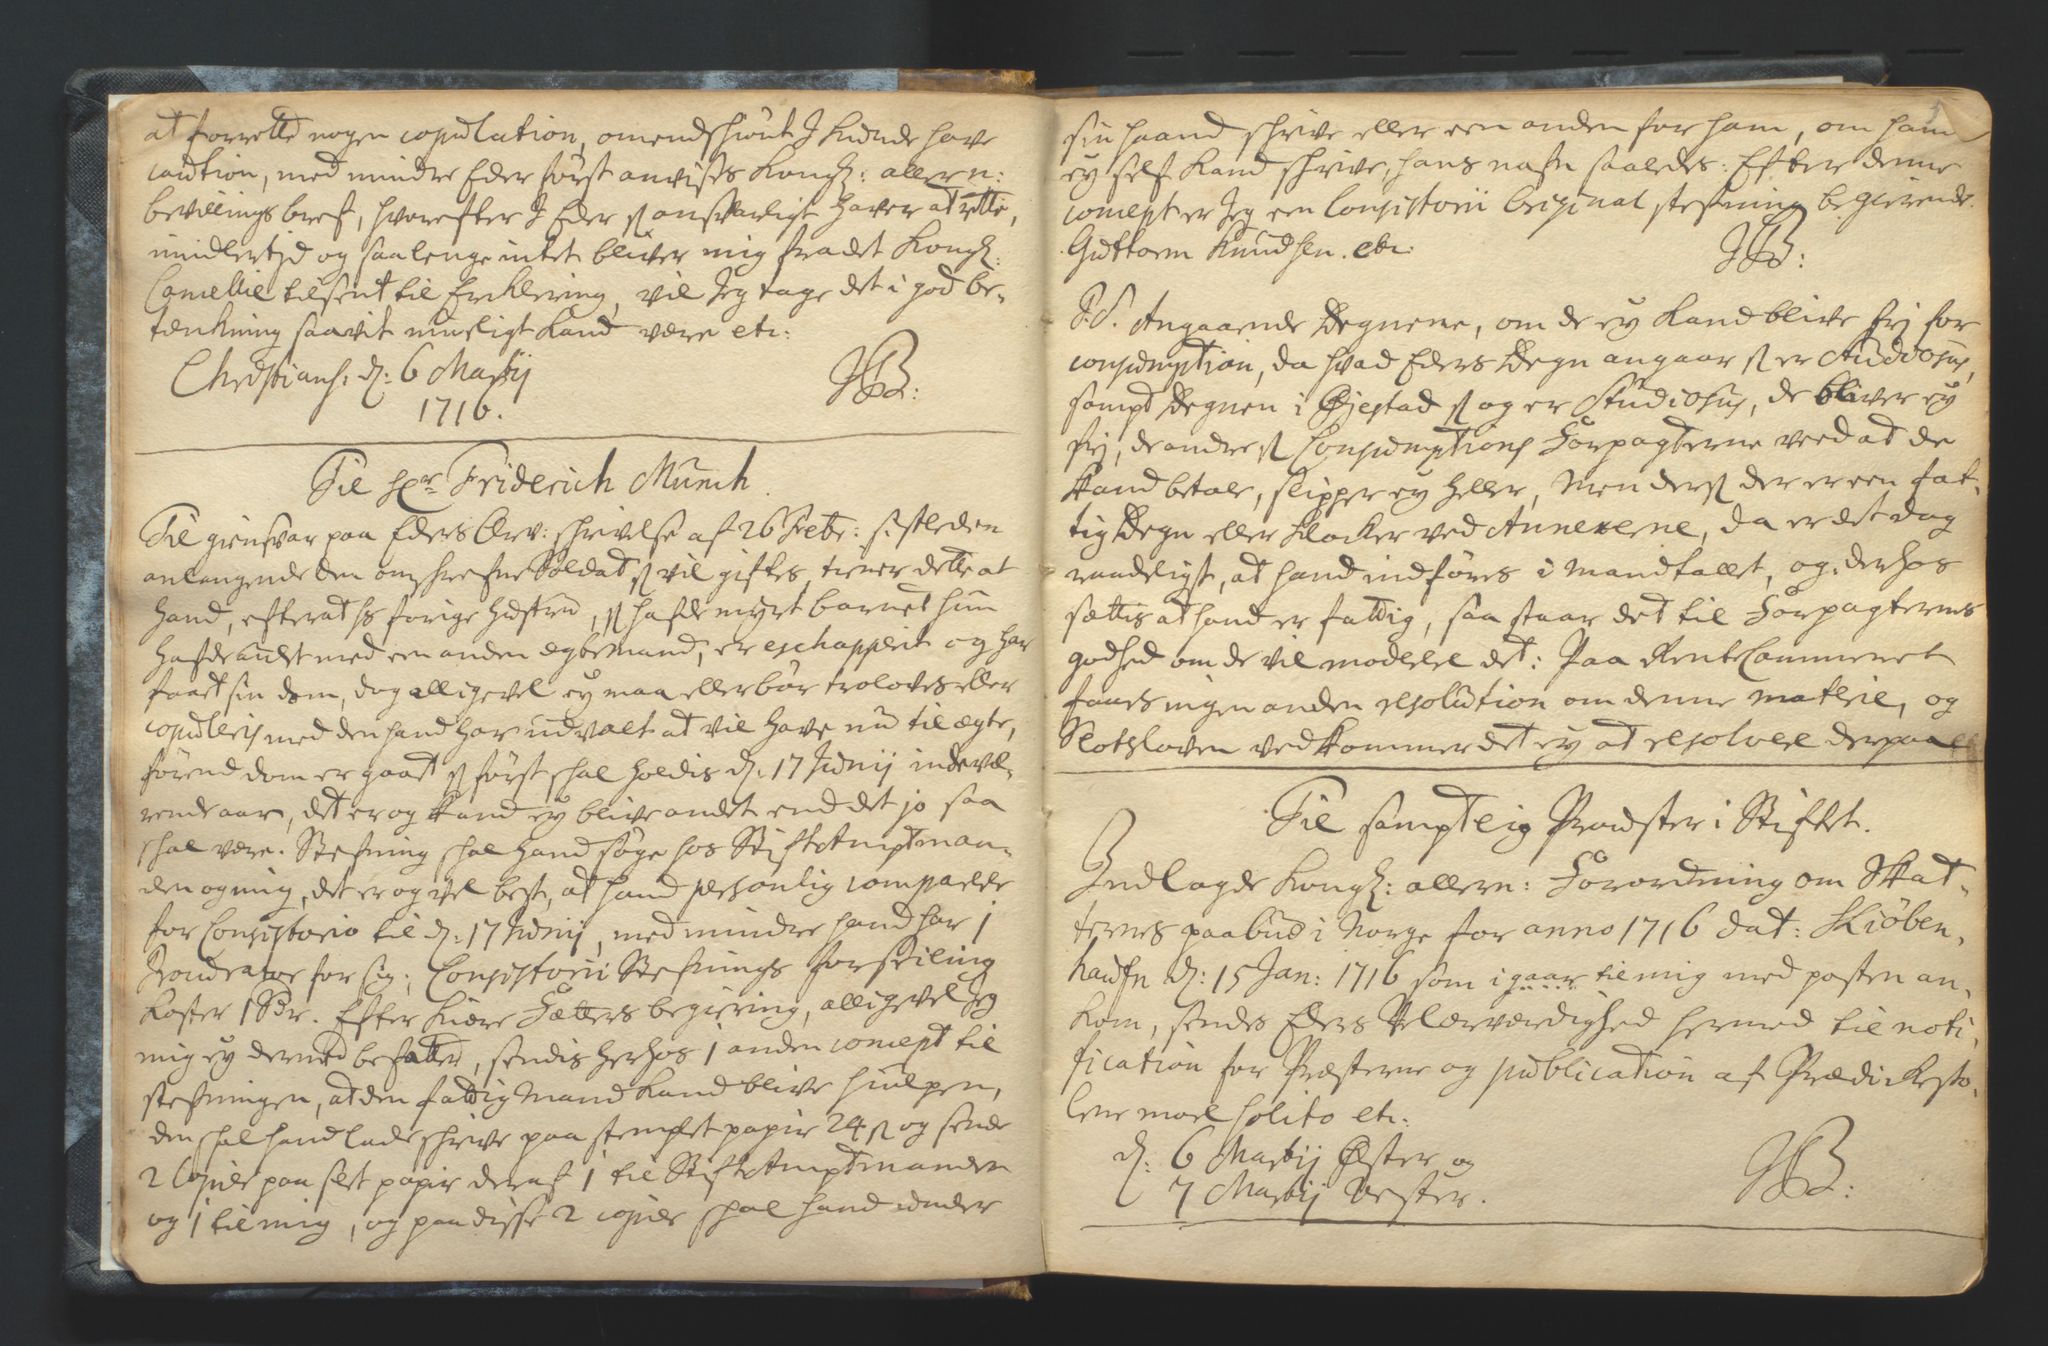 at forrette nogen copulation, omendschiönt I kunde have
caution, med mindre Eder först anvises Kongl: allern:
bevillings bref, hvorefter I Eder ansvarligt haver at rette,
imidlertjd og saalenge intet bliver mig fra det Kongl:
Cancellie tilsendt til Erklering, vil Jeg tage det i god be-
tenkning saavit mueligt kand være etc:
Christians: d: 6 Martij
1716.
JB:
Til Hr Friderich Münch.
Til giensvar paa Eders Ærv: schrivelse af 26 Febr: sistleden
anlangende den omschrefne Soldat som vil giftes, tiener dette at
hand, efterat hs forige hustru, som hafde myrt barnet hun
hafde auflet med een anden egtemand, er eschapperit og har
faaet sin dom, dog alligevel ey maa eller bör troloves eller
copuleris med den hand har udvalt at vil have nu til ægte,
förend dom er gaaet som först schal holdis d: 17 Junij indevæ-
rende aar, det er og kand ey blive andet end det jo saa
schal være. Stefning schal hand söge hos Stiftamptman-
den og mig, det er og vel best, at hand personlig comparerer
for Consistorio til d: 17 Junij, med mindre hand har 1
Procurator for sig; Consistorii Stefnings forseiling
koster 1 Rdr. Efter kiære Fatters begiering, alligevel Jeg
mig ey dermed befatter, sendis herhos 1 anden concept til
stefningen, at den fattig Mand kand blive hiulpen,
den schal hand lade schrive paa stemplet papir 24 s og sende
2 Copier paa slet papir deraf 1 til Stiftamptmanden
og 1 til mig, og paa disse 2 copier schal hand under
5
sin haand schrive eller een anden for ham, om hand
ey self kand schrive, hans nafn saaledes: Efter denne
concept er Jeg een Consistorii Original stefning begierende.
Guttorm Knudsen. etc:
JB:
P.S. Angaaende Degnene, om de ey kand blive frj for
consumption, da hvad Eders Degn angaar som er studiosus,
sampt Degnen i Øjestad som og er studiosus, de bliver ey
frj, de andre som Consumptions Forpagterne veed at de
kand betale, slipper ey heller, Men dersom der er een fat-
tig Degn eller Klocker ved Annexene, da er det dog
raadeligst, at hand indföres i Mandtallet, og derhos
settis at hand er fattig, saa staar det til Forpagternes
godhed om de vil moderere det: Paa RenteCammeret
faaes ingen anden resolution om denne materie, og
Slotsloven vedkommer det ey at resolvere derpaa
Til samptlig Provster i Stiftet.
Indlagde Kongl: allern: Forordning om Skat-
ternes paabud i Norge for anno 1716 dat: Kiöben-
haufn d: 15 Jan: 1716 som i gaar til mig med posten an-
kom, sendes Eders Velærværdighed hermed til noti-
fication for Præsterne og publication af Prædikesto-
lene more solito etc:
d: 6 Martij Øster og
7 Martij Vester.
JB: